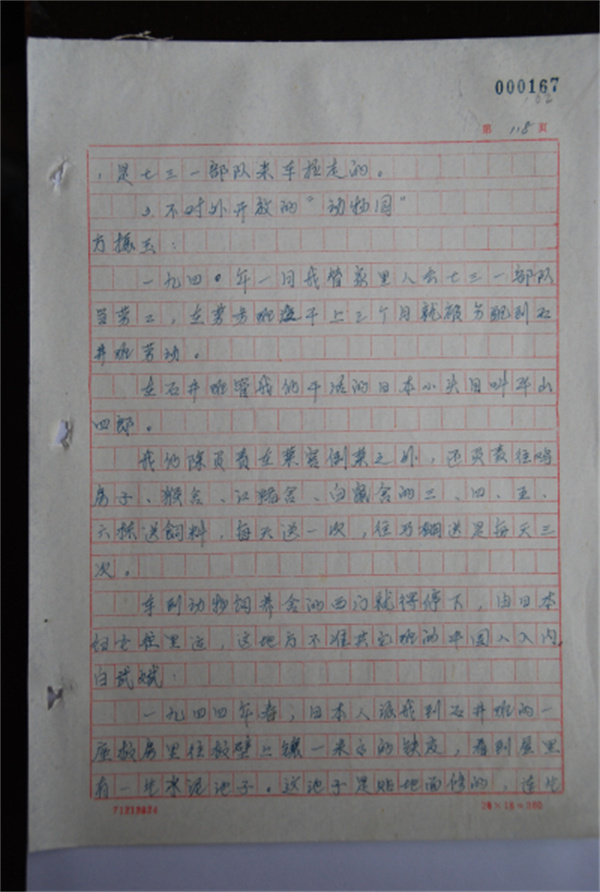 000167
102
第 118 页
，是七三一部队来车拉走的。
3、不对外开放的“动物园”
方振玉：
一九四〇年一月我替家里人去七三一部队
当劳工，在劳务班干上三个月就被分配到石
井班劳动。
在石井班管我们干活的日本小头目叫平山
四郎。
我们除负责在菜窖倒菜之外，还负责往鸡
房子、猴舍、白鼠舍的三、四、五、
六栋送饲料，每天送一次，往马棚送是每天三
次。
车到动物饲养舍的西门就得停下，由日本
往里运，这地方不准其它班的中国人入内。
白试斌：
一九四四年春，日本人派我到石井班的一
座板房里往板壁上镶一米高的铁皮，看到屋里
有一些水泥池子。这池子是贴地面修的，连
20×15＝300